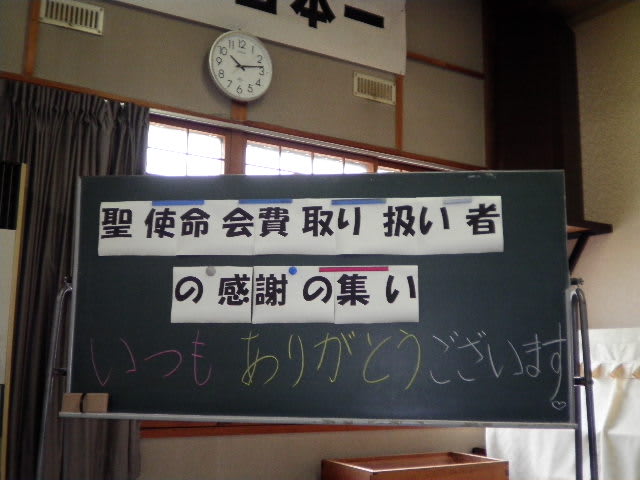 日本一
聖使命会費取り扱い者
の感謝の集い
いつも ありがとうございます♡